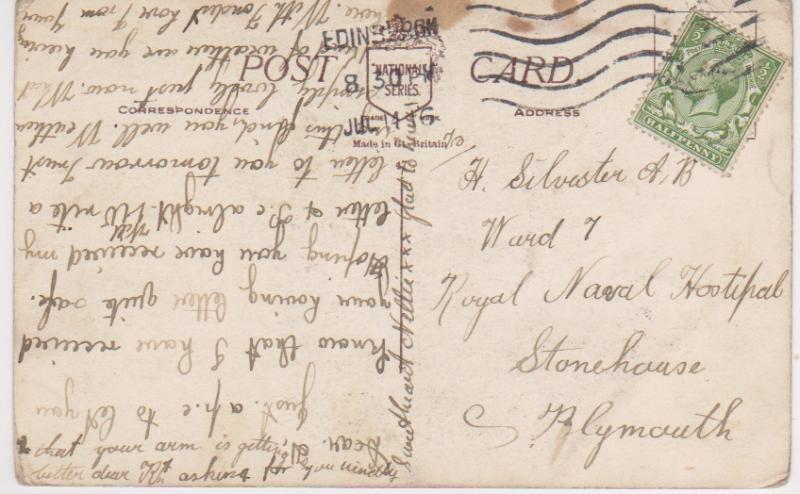 POST CARD.
NATIONAL
SERIES.
CORRESPONDENCE
ADDRESS
Made in Gt. Britain
8 30 PM
JUL 4 16
HALF PENNY
H. Silvester A,B
Ward 7
Royal Naval Hostipal
Stonehouse
Plymouth
Dear
Just a p.c to let you
know that I have received
your loving letter quite safe.
Hoping you have received my
letter & be alright Will write a
letter to you tomorrow Trust
this finds you well. Weather
simply lovely just now. What
sort of weather are you having
here. With Fondest love from your
Sweetheart Nellie xxx glad to hear
that your arm is getting
better dear